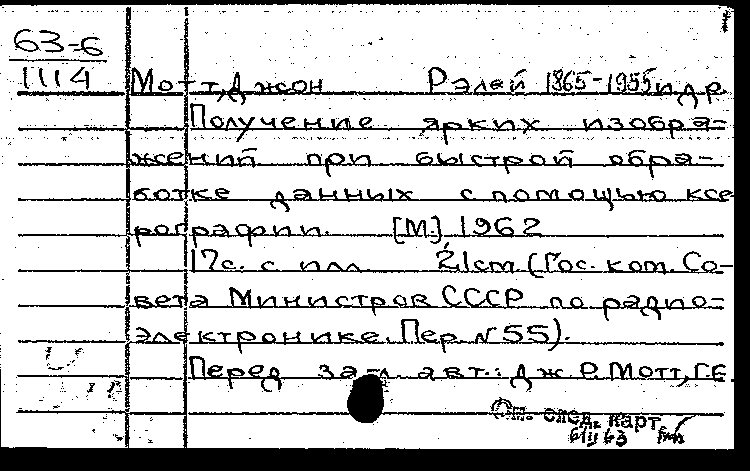 63-6
1114
Мотт, Джон Рэлей 1865-1955 и др.
Получение ярких изобра-
жений при быстрой обра-
ботке данных с помощью ксе
рографии. [М.], 1962
17с. с илл. 21cm (Гос. ком. Со-
вета Министров СССР по радио-
электронике. Пер. N 55).
Перед загл. авт.: Дж. Р. Мотт, Г.Е.
См. след. карт.
63